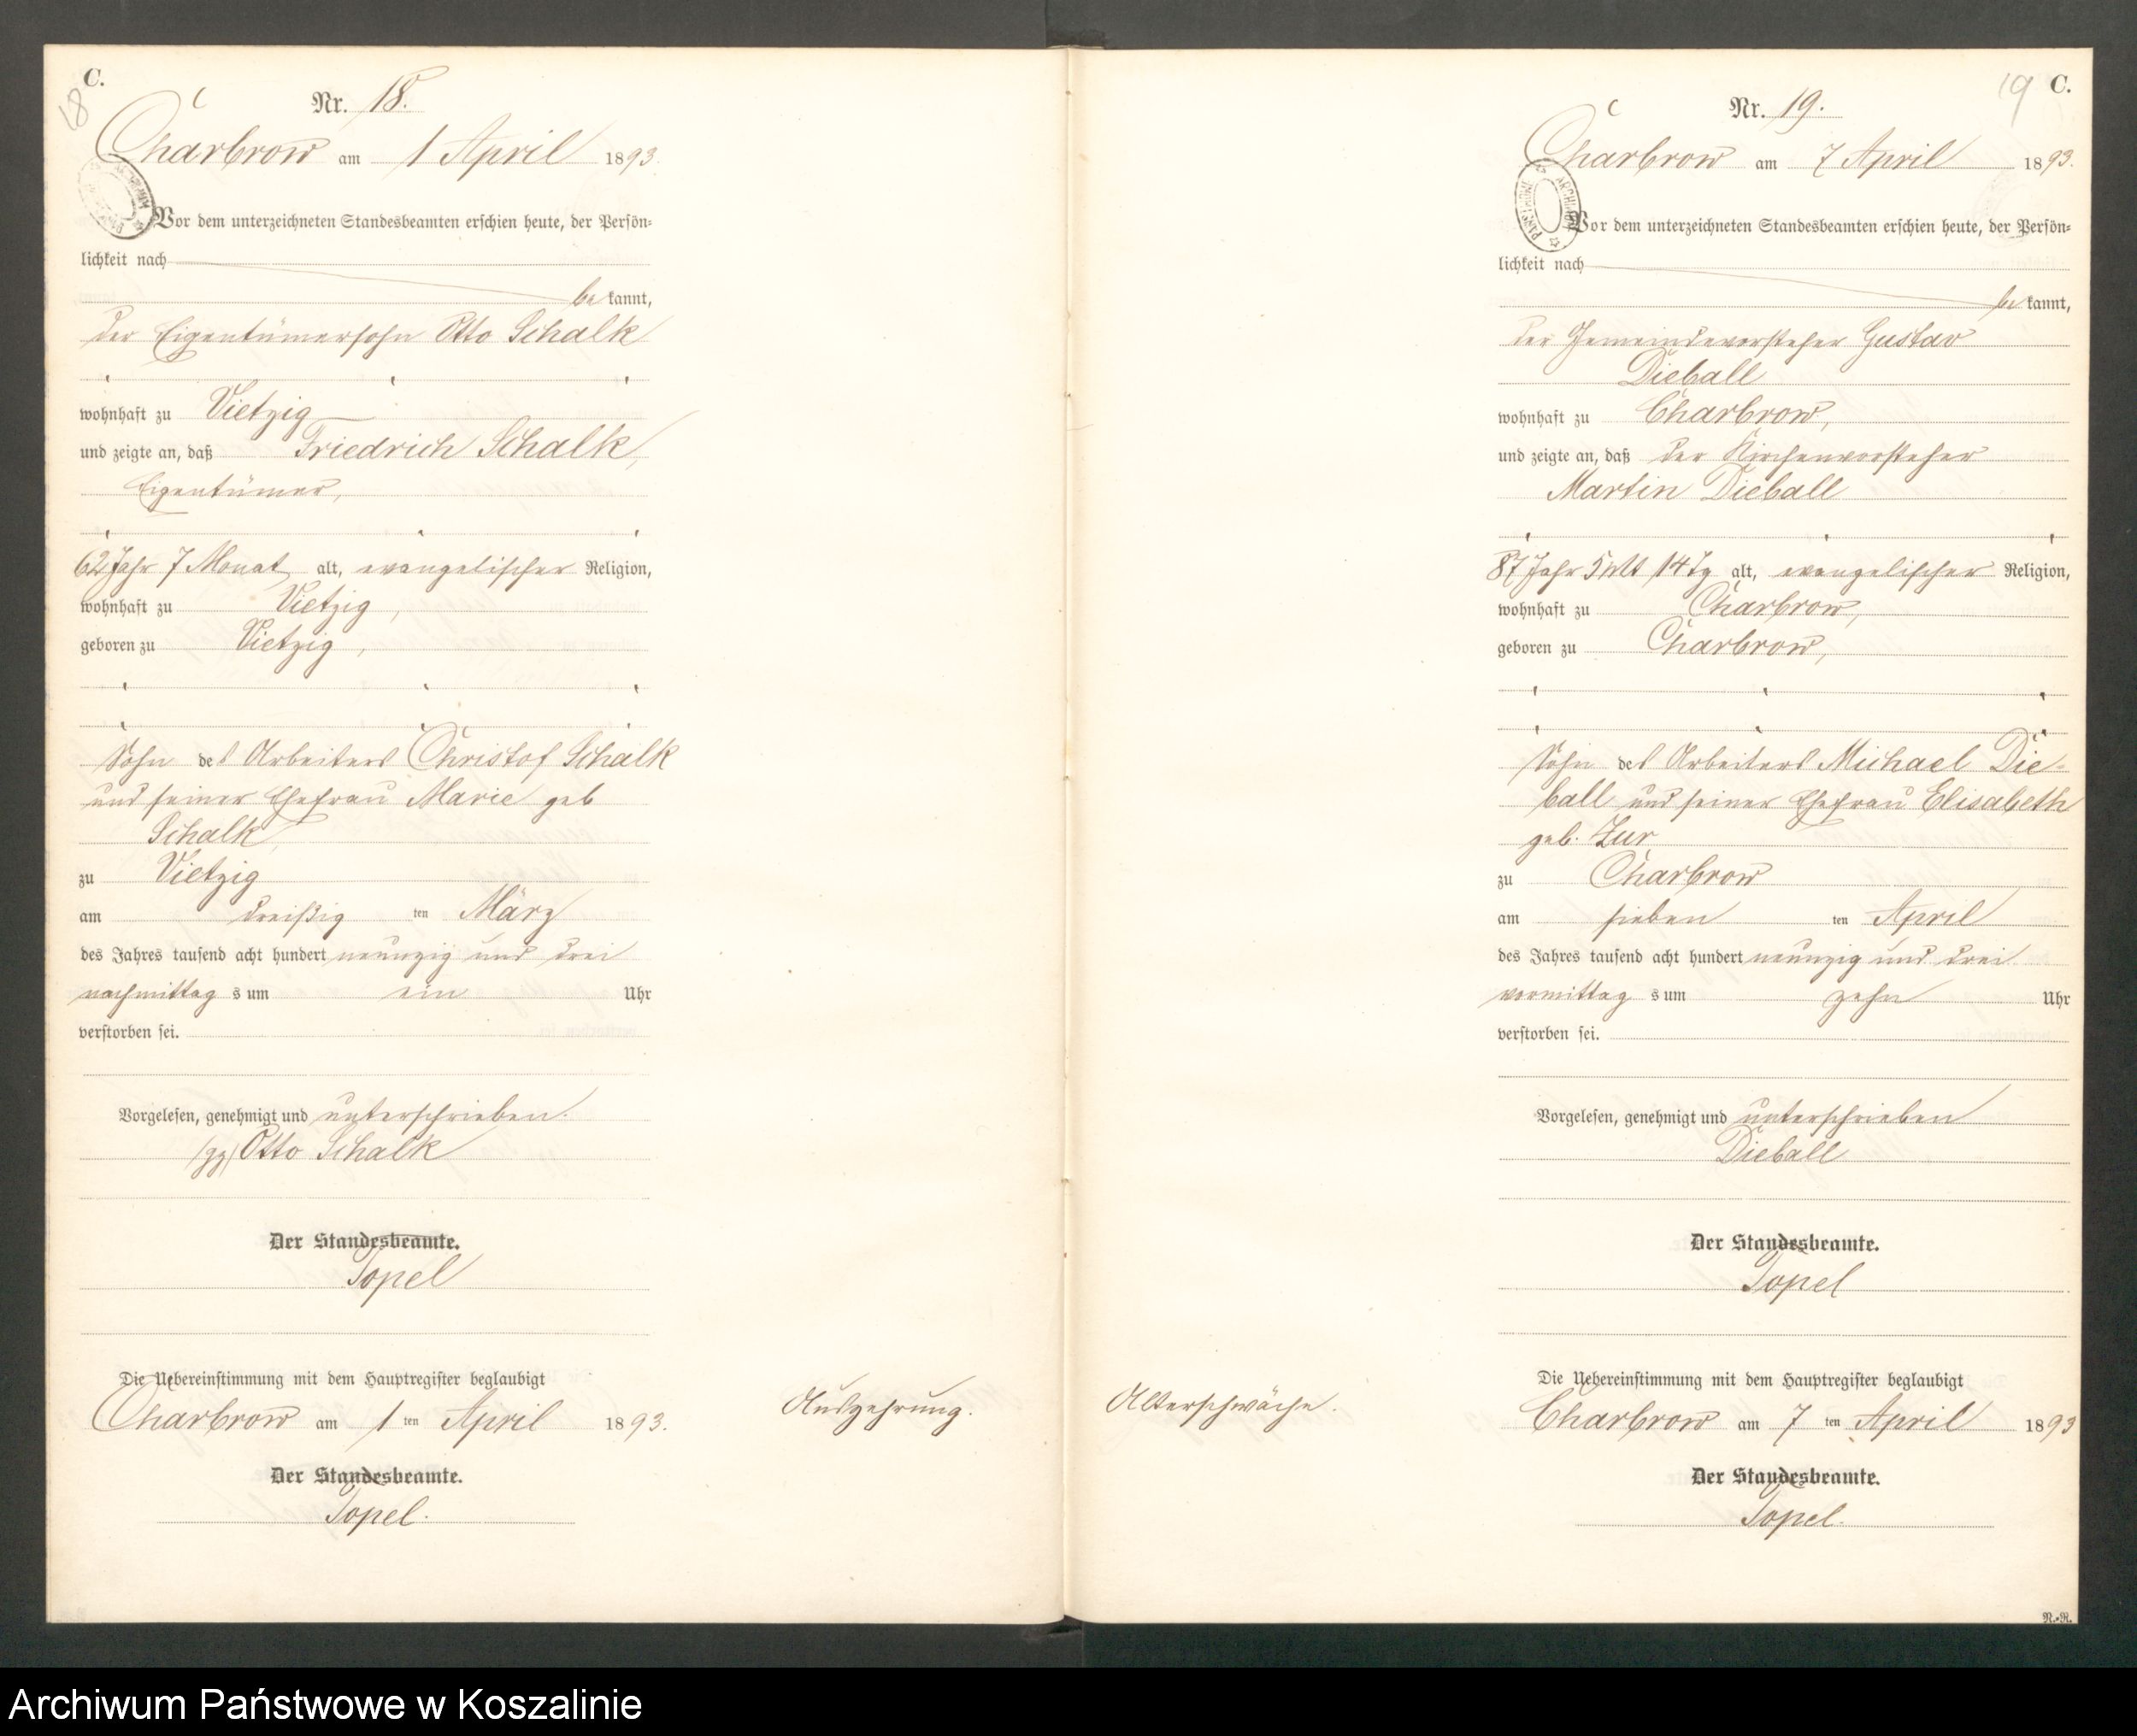 C.
18
Nr. 18.
Charbrow am 1 April 1893.
Vor dem unterzeichneten Standesbeamten erschien heute, der Persön-
lichkeit nach
bekannt,
der Eigentümersohn Otto Schalk
wohnhaft zu Vietzig
und zeigte an, daß Friedrich Schalk,
Eigentümer,
62 Jahr 7 Monat alt, evangelischer Religion,
wohnhaft zu Vietzig,
geboren zu Vietzig,
Sohn des Arbeiters Christof Schalk
und seiner Ehefrau Marie geb
Schalk,
zu Vietzig
am dreißig ten März
des Jahres tausend acht hundert neunzig und drei
nachmittag s um ein Uhr
verstorben sei.
Vorgelesen, genehmigt und unterschrieben.
Otto Schalk
Der Standesbeamte.
Topel
Die Uebereinstimmung mit dem Hauptregister beglaubigt
Charbrow am 1 ten April 1893.
Der Standesbeamte.
Topel.
Auszehrung.
19 C.
Nr. 19.
Charbrow am 7 April 1893.
ARCHIWUM PAŃSTWOWE
Vor dem unterzeichneten Standesbeamten erschien heute, der Persön-
lichkeit nach
bekannt,
der Gemeindevorsteher Gustav
Dieball
wohnhaft zu Charbrow,
und zeigte an, daß der Kirchenvorsteher
Martin Dieball
87 Jahr 5 Mt 14 Tg alt, evangelischer Religion,
wohnhaft zu Charbrow,
geboren zu Charbrow,
Sohn des Arbeiters Michael Die-
ball und seiner Ehefrau Elisabeth
geb. Zur
zu Charbrow
am sieben ten April
des Jahres tausend acht hundert neunzig und drei
vormittag s um zehn Uhr
verstorben sei.
Vorgelesen, genehmigt und unterschrieben
Dieball
Der Standesbeamte.
Topel
Die Uebereinstimmung mit dem Hauptregister beglaubigt
Charbrow am 7 ten April 1893
Der Standesbeamte.
Topel.
Alterschwäche.
N.-R.
Archiwum Państwowe w Koszalinie